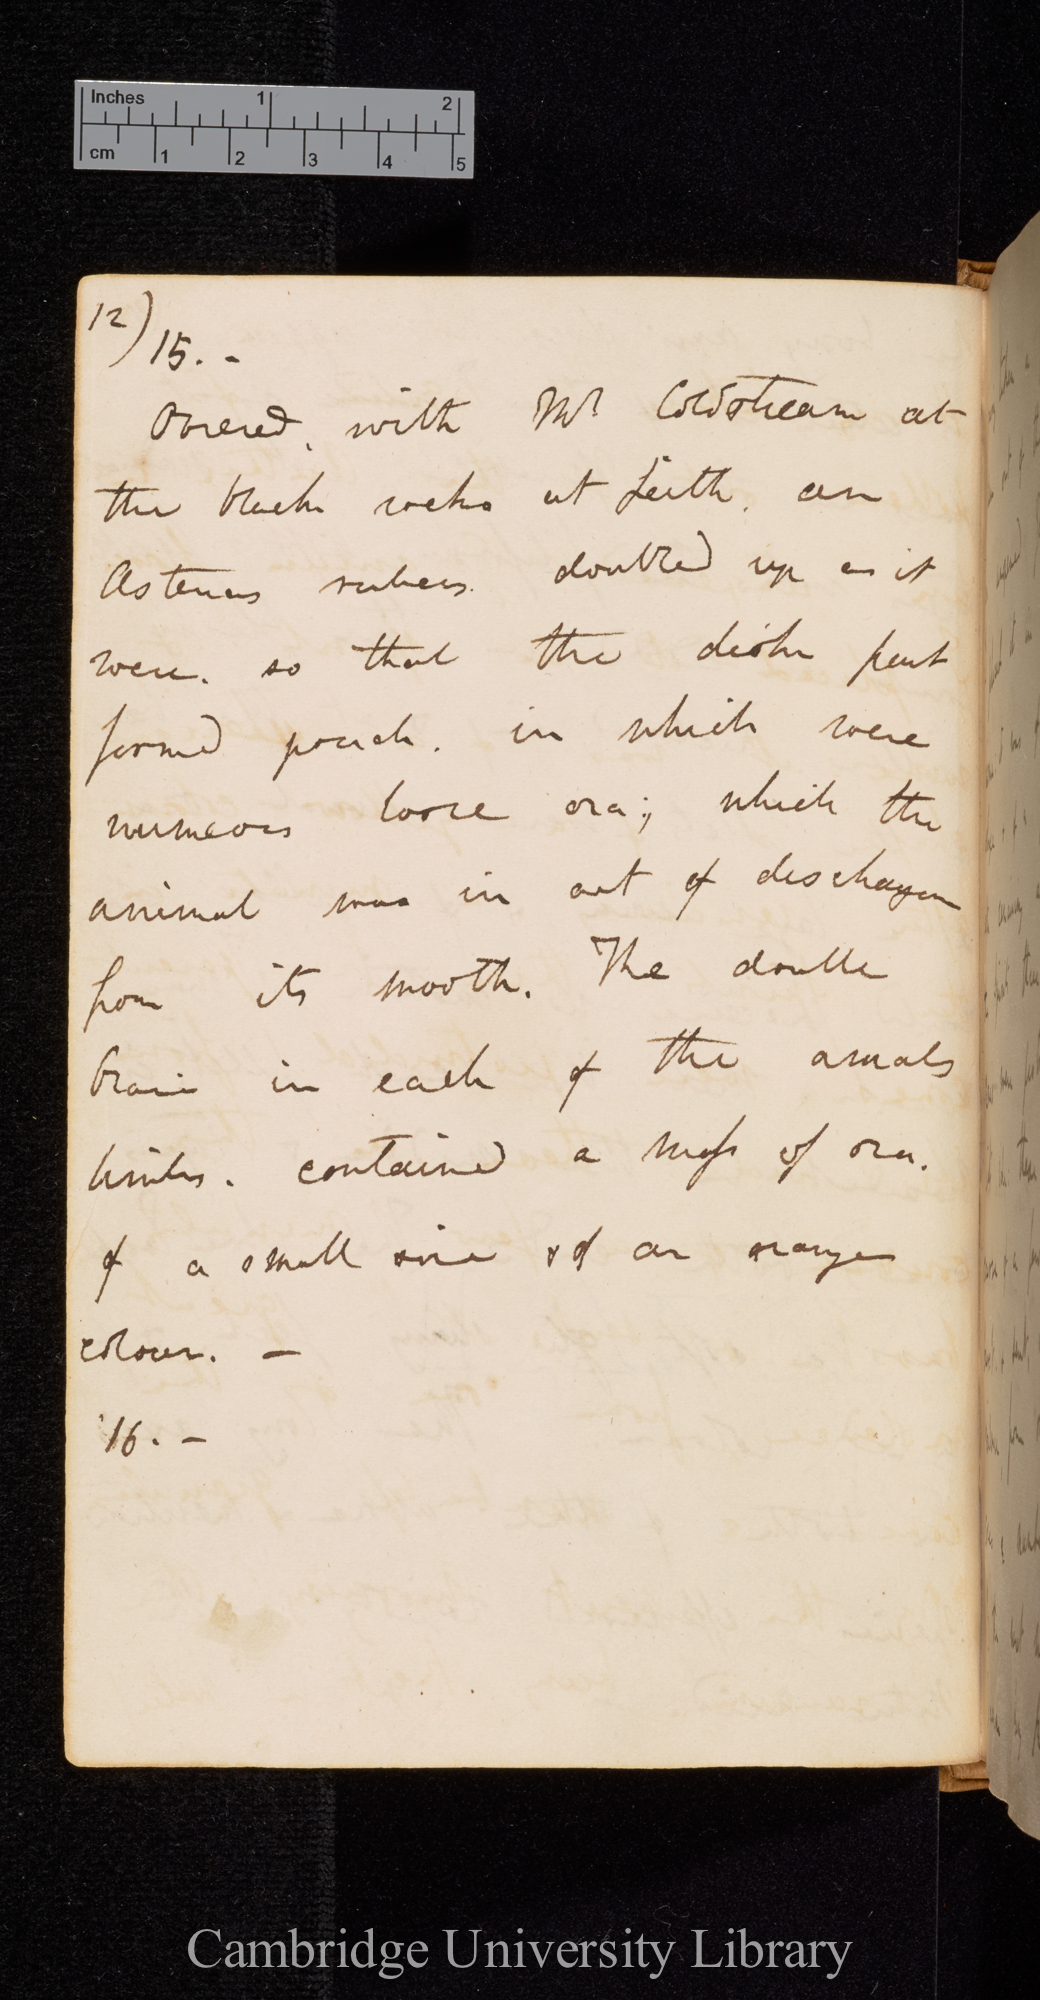 Inches 1 2
cm 1 2 3 4 5
12)
15. -
Obsered, with Mr Coldstream at
the black rocks at Leith, an
Asterias rubens doubled up as it
were. so that the dish part
formed pouch. in which were
numerous loose ova; which the
animal was in act of discharging
from its mouth. The double
brain in each of the amals
limbs. contained a mass of ova.
of a small size & of an orange
colour. —
16. —
Cambridge University Library